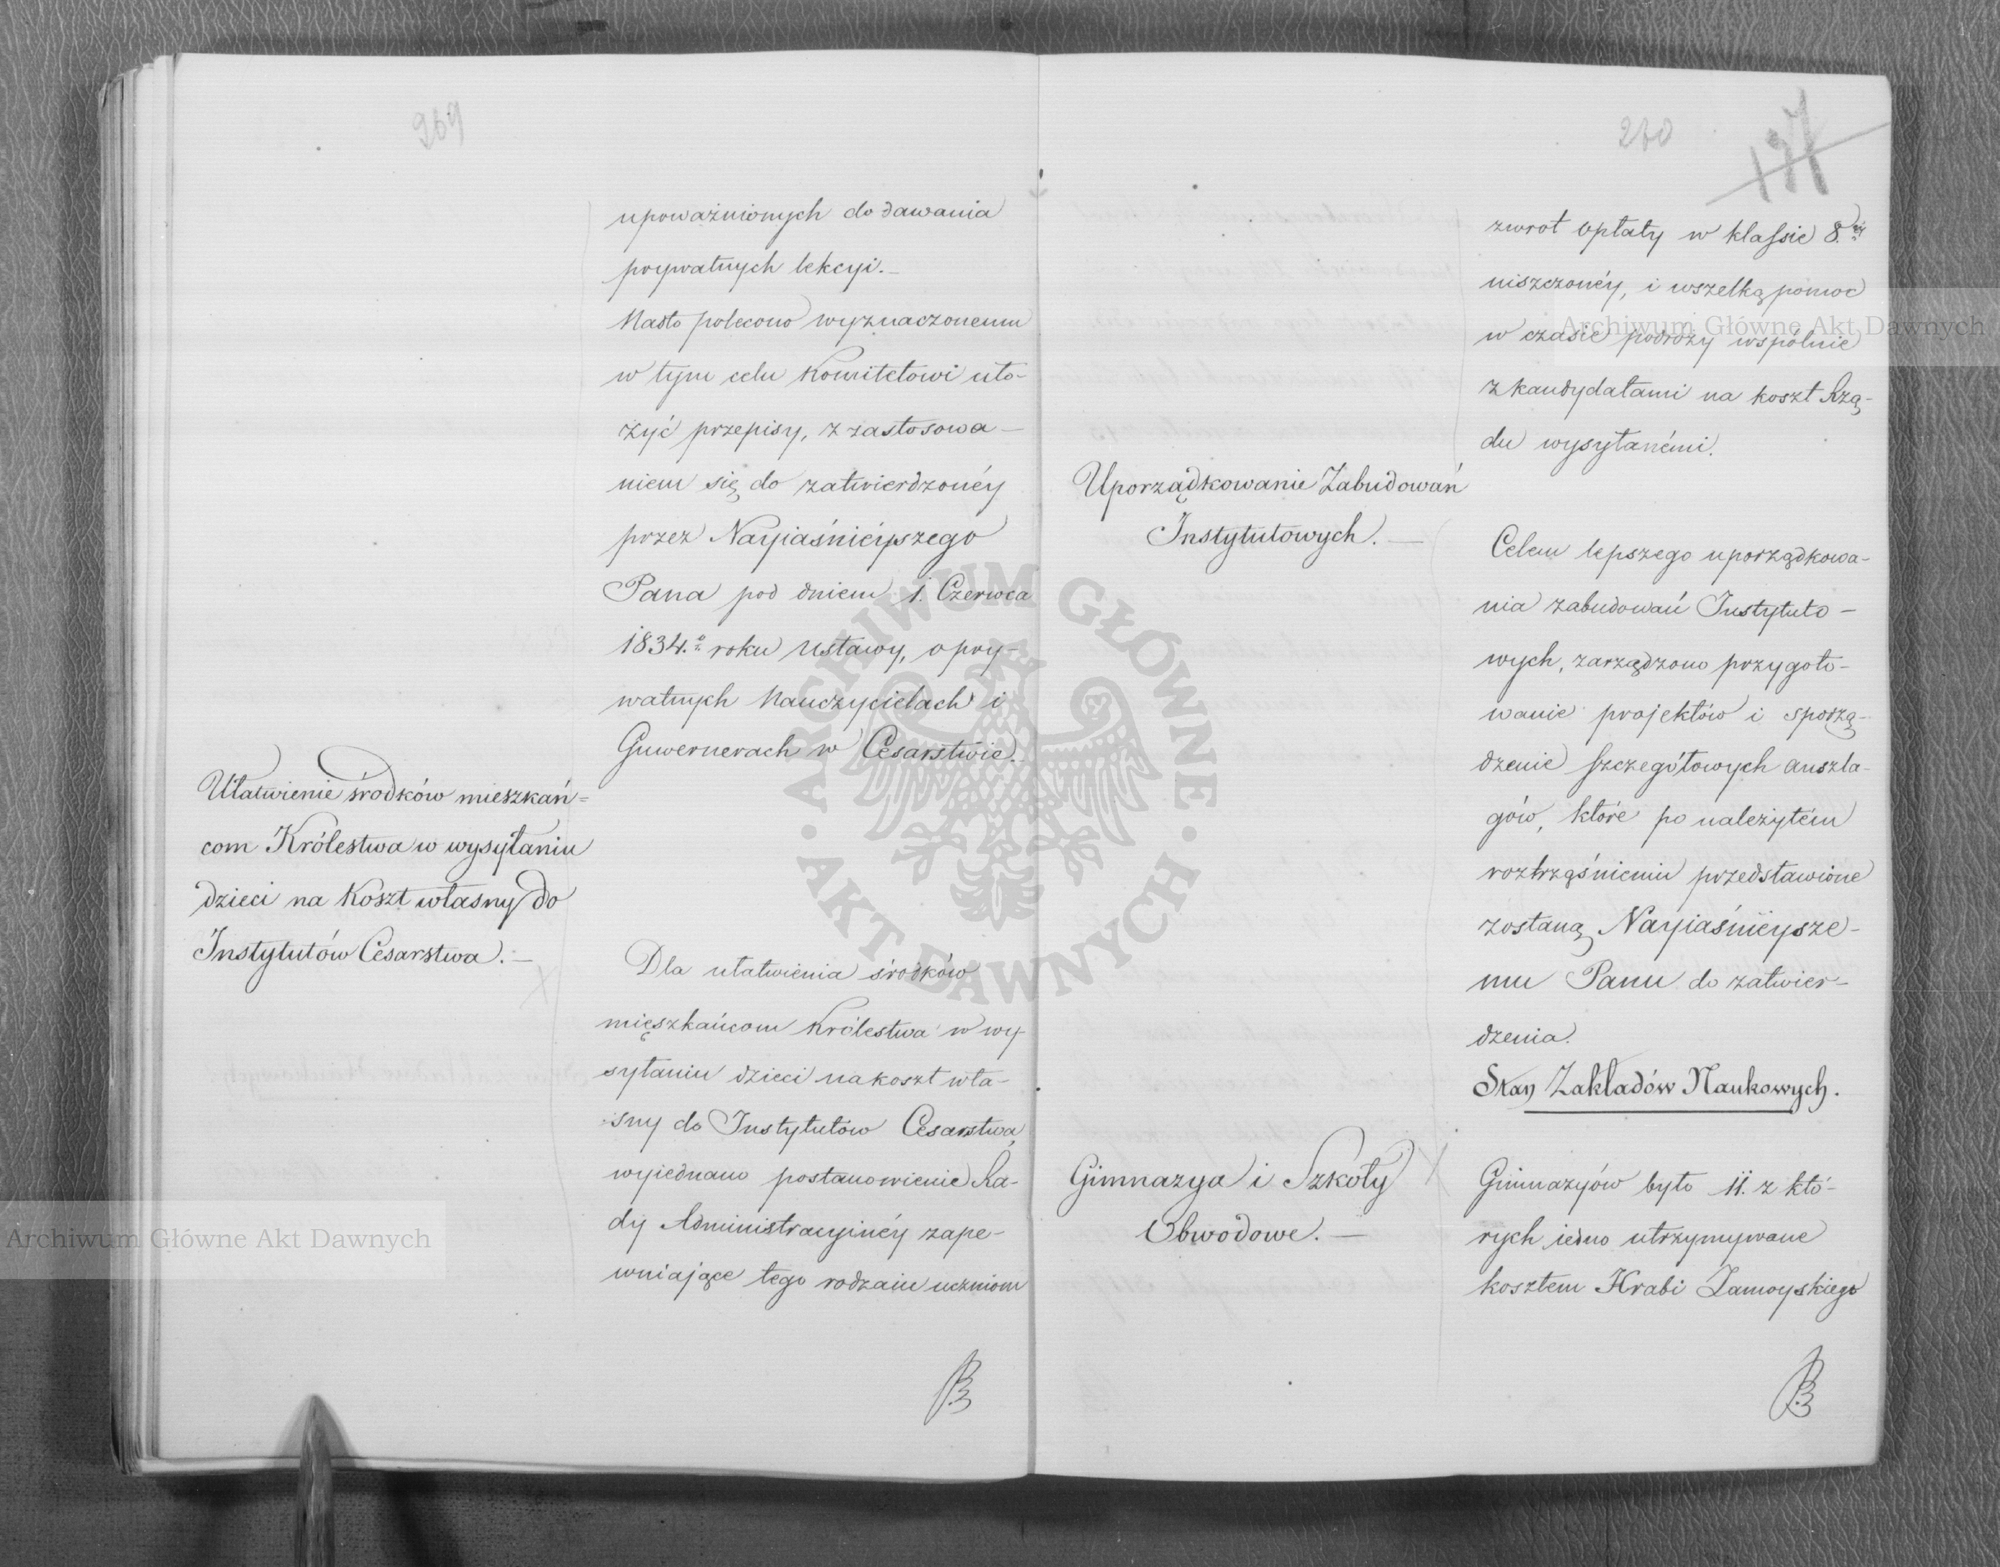 269
upoważnionych do dawania
prywatnych lekcyi.—
Nadto polecono wyznaczonemu
w tym celu Komitetowi uło-
żyć przepisy, z zastosowa-
niem się do zatwierdzonéy
przez Nayiaśnieyszego
Pana pod dniem 1. Czerwca
1834.º roku Ustawy, o pry-
watnych Nauczycielach i
Guwernerach w Cesarstwie.
Ułatwienie środków mieszkań=
com Królestwa w wysyłaniu
dzieci na koszt własny do
Instytutów Cesarstwa.—
Dla ułatwienia środków
mieszkańcom Królestwa w wy-
syłaniu dzieci na koszt wła-
sny do Instytutów Cesarstwa,
wyiednano postanowienie Ra-
dy Administracyinéy zape-
wniaiące tego rodzaiu uczniom
260
137
zwrot opłaty w klassie 8.éy
niszczonéy, i wszelką pomoc
w czasie podróży wspólnie
z kandydatami na koszt Rzą-
du wysyłanémi.
Uporządkowanie Zabudowań
Instytutowych.—
Celem lepszego uporządkowa-
nia zabudowań Instytuto-
wych, zarządzono przygoto-
wanie projektów i sporzą-
dzenie szczegółowych anszla-
gów, które po należytém
roztrząśnieniu przedstawione
zostaną Nayiaśnieysze-
mu Panu do zatwier-
dzenia.
Stan Zakładów Naukowych.
Gimnazya i Szkoły
Obwodowe.—
Gimnazyów było 11. z któ-
rych iedno utrzymywane
kosztem Hrabi Zamoyskiego
Archiwum Główne Akt Dawnych
Archiwum Główne Akt Dawnych
ARCHIWUM GŁÓWNE · AKT DAWNYCH ·